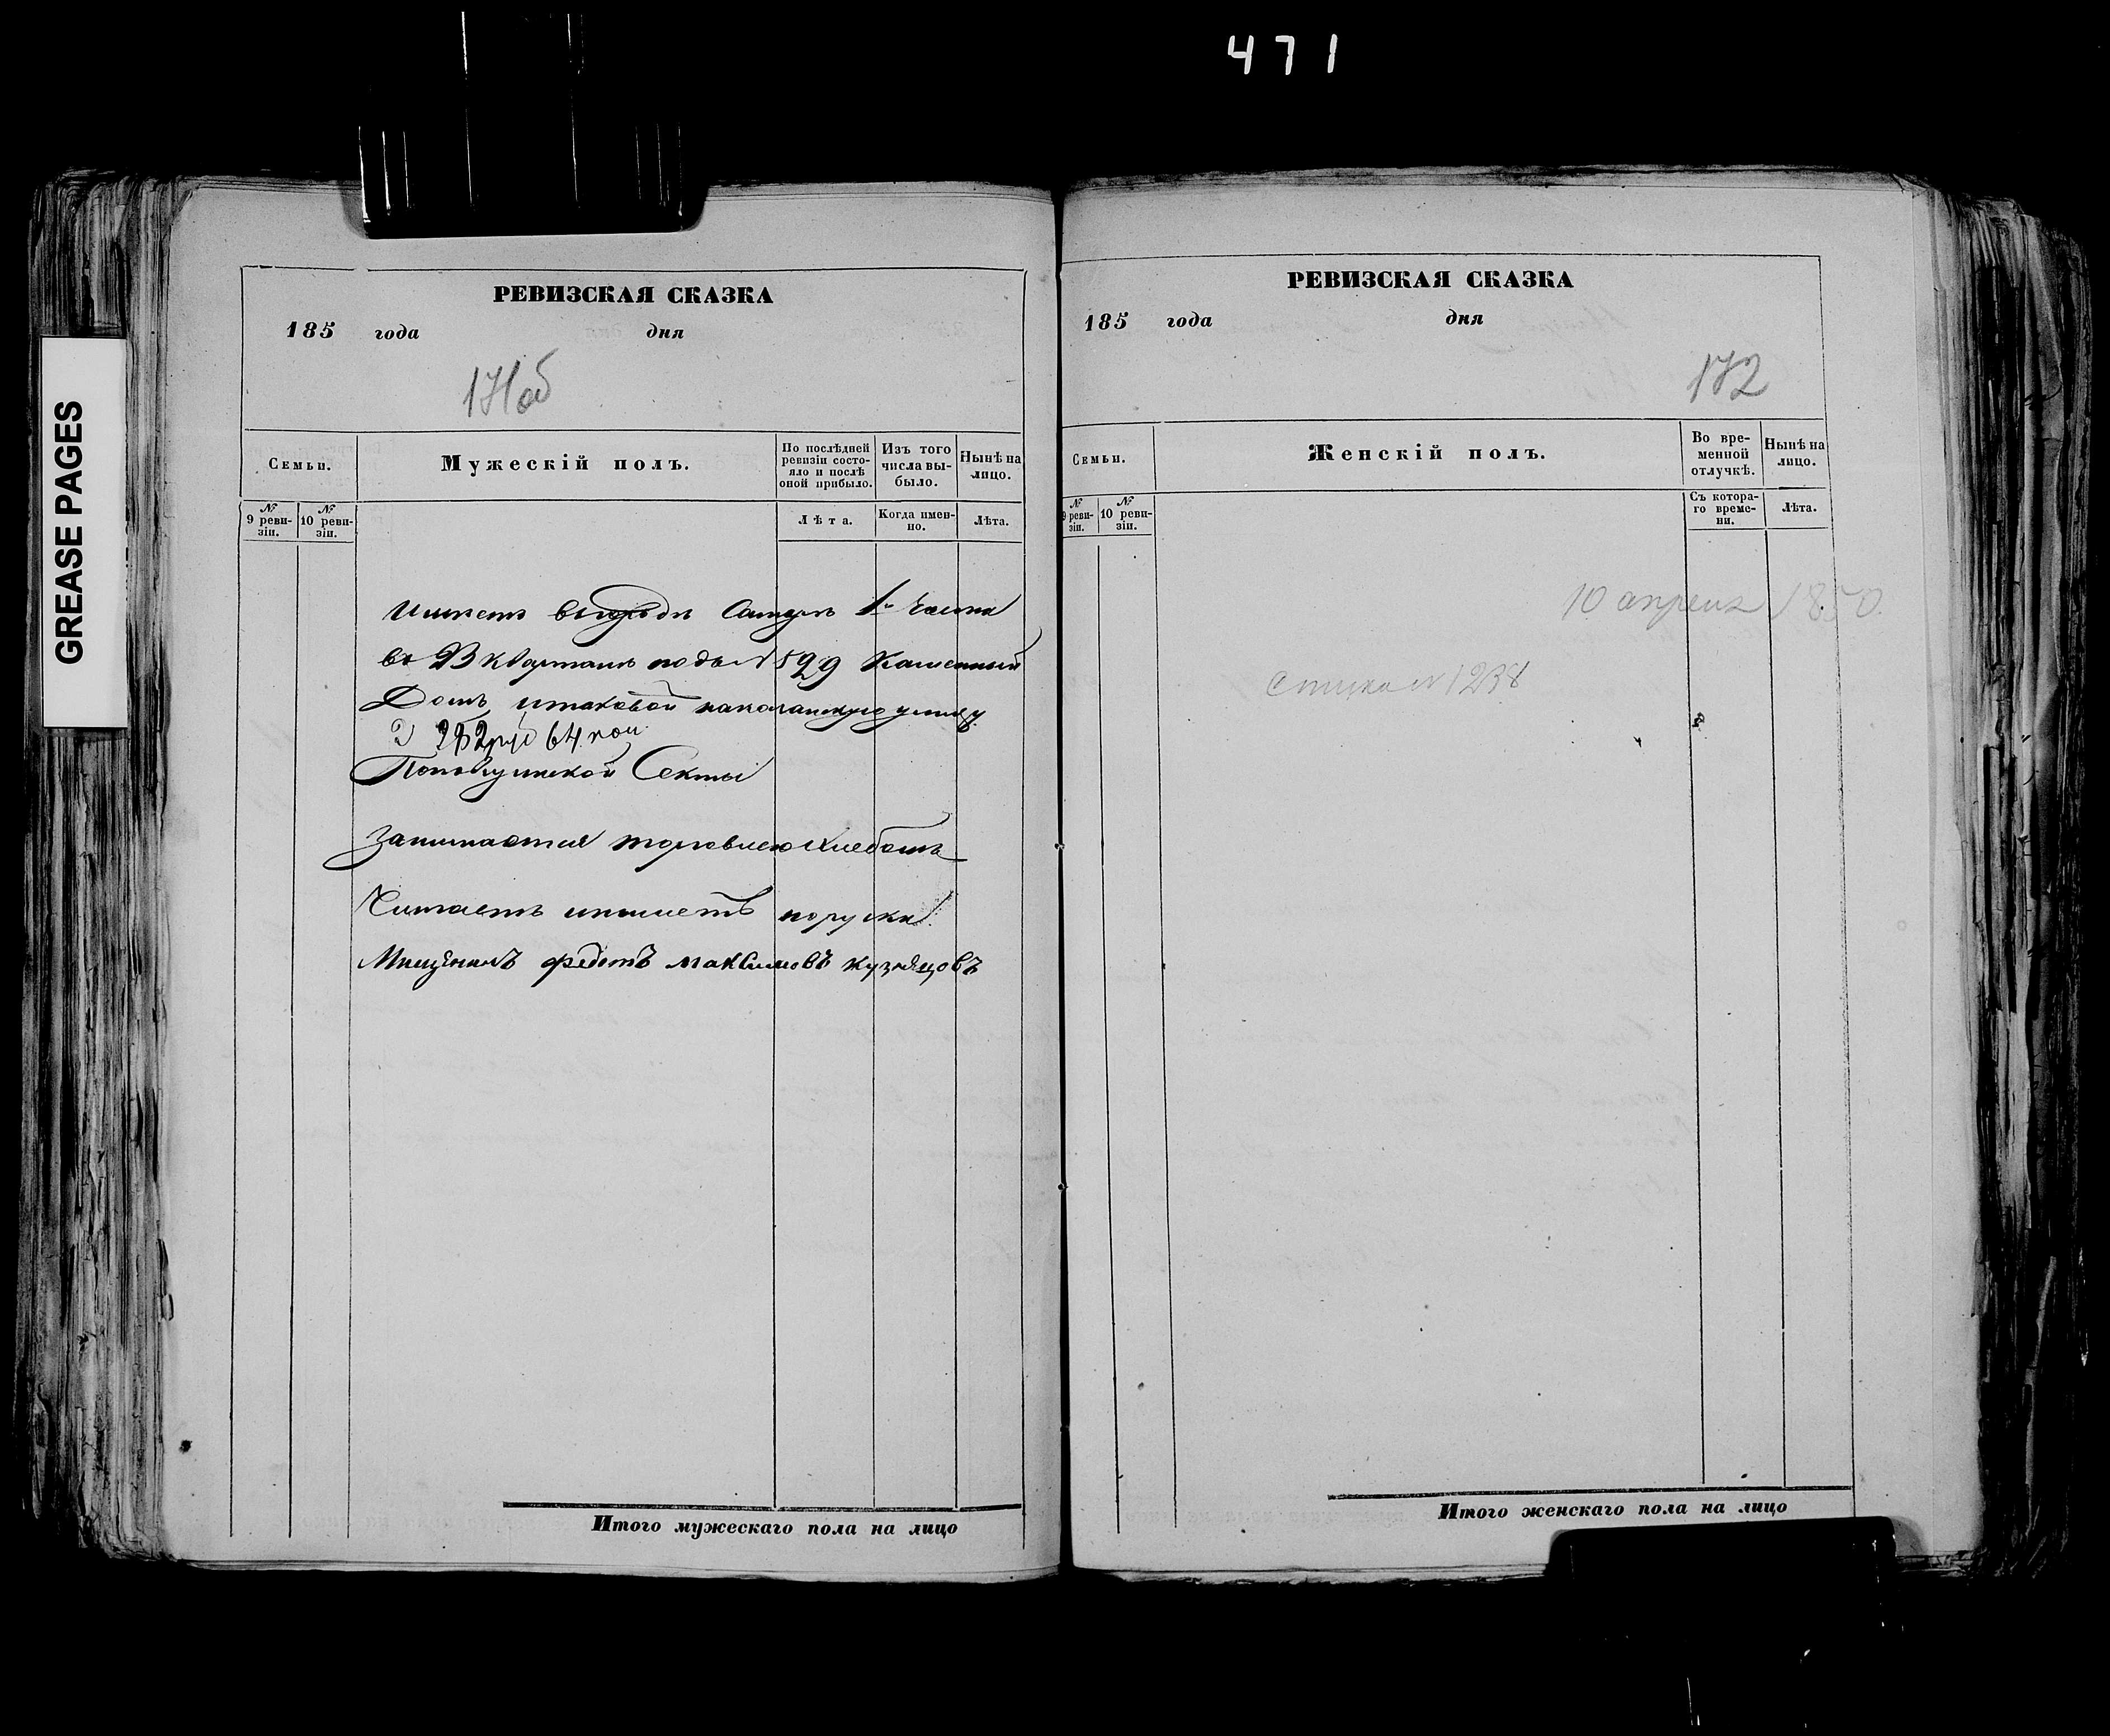 471
GREASE PAGES
РЕВИЗСКАЯ СКАЗКА
185 года дня
171 об
Семьи.
Мужескій полъ.
По послѣдней ревизіи состо-
яло и послѣ
оной прибыло.
Изъ того
числа вы-
было.
Нынѣ на
лицо.
№
9 реви-
зіи.
№
10 реви-
зіи.
Лѣта.
Когда имен-
но.
Лѣта.
имѣетъ въ городѣ 1й части
въ 23 кварталѣ подъ № 529 Каменный
Домъ
252 руб 64 коп
Поповщинской Секты
Занимается торговлею хлебомъ
Читаетъ ипишетъ поруски
Мищенинъ федотъ максимовъ кузнецовъ
Итого мужескаго пола на лицо
РЕВИЗСКАЯ СКАЗКА
185 года дня
172
Семьи.
Женскій полъ.
Во вре-
менной
отлучкѣ.
Нынѣ на
лицо.
№
9 реви-
зіи.
№
10 реви-
зіи.
Съ котора-
го време-
ни.
Лѣта.
10 апреля 1850.
№ 1238
Итого женскаго пола на лицо